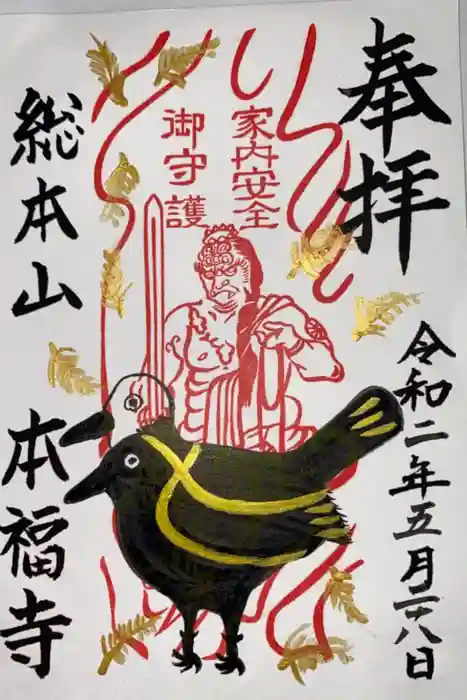 奉拝
家内安全
御守護
令和二年五月二十八日
総本山 本福寺